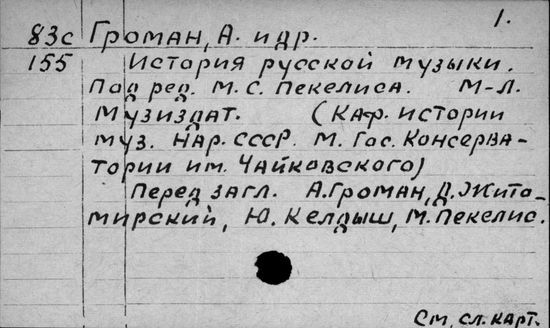 1.
83с Громан, А. и др.
155 История русской музыки.
Под ред. М. С. Пекелиса. М-Л.
Музиздат. (Каф. истории
муз. нар. СССР. М. Гос. Консерва-
тории им. Чайковского)
Перед загл. А. Громан, Д. Жито-
мирский, Ю. Келдыш, М. Пекелис.
См. сл. карт.